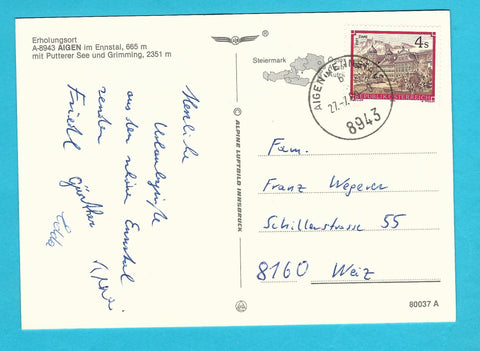 Erholungsort
A-8943 AIGEN im Ennstal, 665 m
mit Putterer See und Grimming, 2351 m
Herzliche
Urlaubsgrüße
aus dem schönen Ennstal
senden
Friedl Günther
© ALPINE LUFTBILD INNSBRUCK
®
Steiermark
4 S
REPUBLIK ÖSTERREICH
AIGEN
27.-7.
8943
Fam.
Franz Wegerer
Schillerstrasse 55
8160 Weiz
80037 A